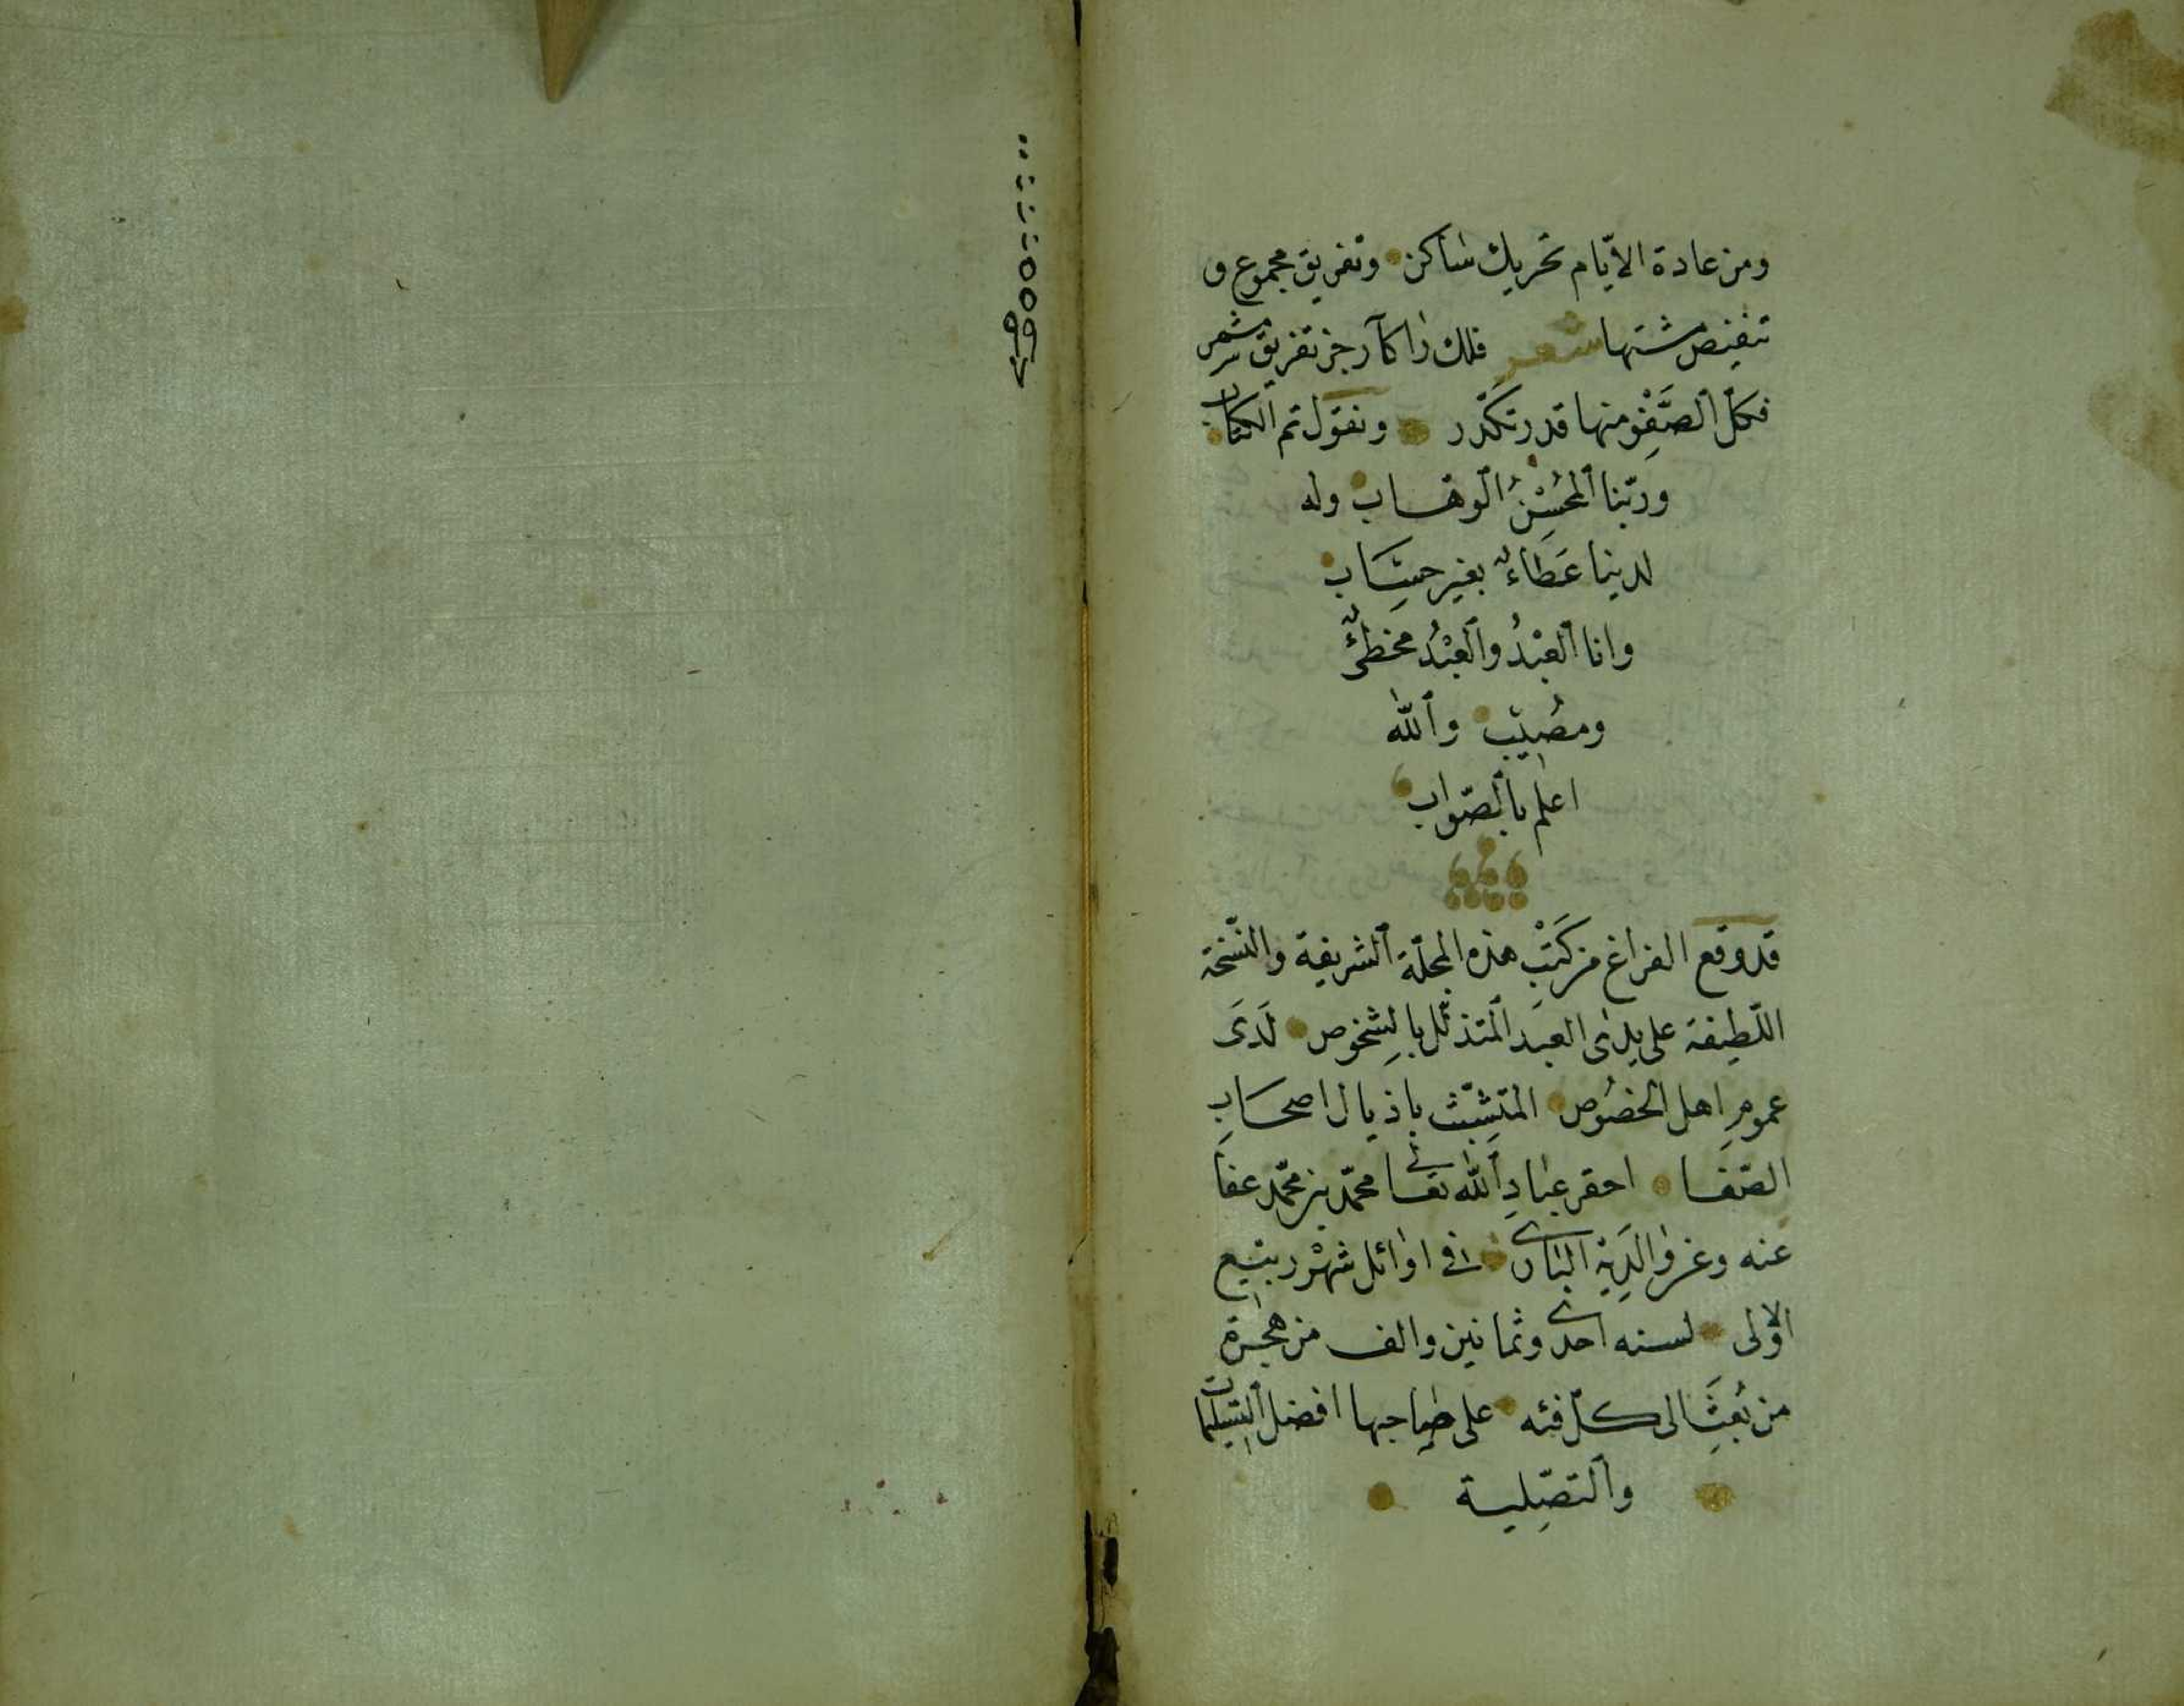 ومن عادة الايّام تحريك ساكن وتفريق مجموع و
تنغيص مشتها شعر فلك
فكلّ الصَّفْوِ منها قد تكدّر ونقول تم الكتاب
وربّنا المحُسِنُ الوهاب وله
لدينا عَطاءٌ بغير حِسَاب
وانا العَبْدُ والعَبْدُ مخطئٌ
ومُصيب والله
اعلم بالصّواب
قد وقع الفراغ من كَتْبِ هذه المجلّة الشريفة والنّسخة
اللّطيفة على يدى العبد المتذلّل بالشخوص لَدَى
عمومِ اهل الخصُوص المتشبّث باذيال اصحَابِ
الصّفَا احقر عبادِ الله تعالى محمّد بن محمّد عفَا
عنه وغفر والدَيهِ البَارى فى اوائل شهْر ربيع
الاولى لسنه احدى وثمانين والف من هجرة
من بُعِثَ الى كلّ فئه على صاحبها افضل التسليمات
والتصّلِية